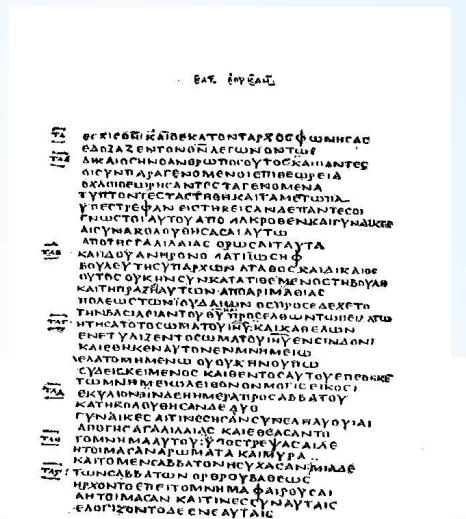 ΟΕΚΑΤΟΝΤΑΡΧΟC ΦΩΝΗCΑC
ΕΔΟΞΑΖΕΝΤΟΝΘΝ ΛΕΓΩΝΟΝΤΩC
ΔΙΚΑΙΟCΗΝΟΑΝΘΡΩΠΟCΟΥΤΟCΚΑΙΠΑΝΤΕC
ΟΙCΥΝΠΑΡΑΓΕΝΟΜΕΝΟΙΕΠΙΘΕΩΡΕΙΑ
ΟΧΛΟΙΘΕΩΡΗCΑΝΤΕCΤΑΓΕΝΟΜΕΝΑ
ΤΥΠΤΟΝΤΕCΤΑCΤΗΘΗΚΑΙΤΑΜΕΤΩΠΑ
ΥΠΕCΤΡΕΨΑΝ ΕΙCΤΗΚΕΙCΑΝΔΕΠΑΝΤΕCΟΙ
ΓΝΩCΤΟΙΑΥΤΟΥ ΑΠΟ ΜΑΚΡΟΘΕΝΚΑΙΓΥΝΑΙΚΕC
ΑΙCΥΝΑΚΟΛΟΥΘΗCΑCΑΙΑΥΤΩ
ΑΠΟΤΗCΓΑΛΙΛΑΙΑC ΟΡΩCΑΙΤΑΥΤΑ
ΚΑΙΙΔΟΥΑΝΗΡΟΝΟΜΑΤΙΙΩCΗΦ
ΒΟΥΛΕΥΤΗCΥΠΑΡΧΩΝ ΑΓΑΘΟC ΚΑΙΔΙΚΑΙΟC
ΟΥΤΟCΟΥΚΗΝCΥΝΚΑΤΑΤΙΘΕΜΕΝΟCΤΗΒΟΥΛΗ
ΚΑΙΤΗΠΡΑΞΙΑΥΤΩΝ ΑΠΟΑΡΙΜΑΘΙΑC
ΠΟΛΕΩCΤΩΝΙΟΥΔΑΙΩΝ ΟCΠΡΟCΕΔΕΧΕΤΟ
ΤΗΝΒΑCΙΛΕΙΑΝΤΟΥΘΥ ΠΡΟCΕΛΘΩΝΤΩΠΕΙΛΑΤΩ
ΗΤΗCΑΤΟΤΟCΩΜΑΤΟΥΙΗΥ ΚΑΙΚΑΘΕΛΩΝ
ΕΝΕΤΥΛΙΞΕΝΤΟCΩΜΑΤΟΥΙΗΥΕΝCΙΝΔΟΝΙ
ΚΑΙΕΘΗΚΕΝΑΥΤΟΝΕΝΜΝΗΜΕΙΩ
ΛΕΛΑΤΟΜΗΜΕΝΩ ΟΥΟΥΚΗΝΟΥΠΩ
ΟΥΔΕΙCΚΕΙΜΕΝΟC ΚΑΙΘΕΝΤΟCΑΥΤΟΥΕΠΕΘΗΚΕ
ΤΩΜΝΗΜΕΙΩΛΕΙΘΟΝΟΝΜΟΓΙCΕΙΚΟCΙ
ΕΚΥΛΙΟΝΗΝΔΕΗΗΜΕΡΑΠΡΟCΑΒΒΑΤΟΥ
ΚΑΤΗΚΟΛΟΥΘΗCΑΝΔΕΔΥΟ
ΓΥΝΑΙΚΕC ΑΙΤΙΝΕCΗCΑΝCΥΝΕΛΗΛΥΘΥΙΑΙ
ΑΠΟΤΗCΓΑΛΙΛΑΙΑC ΚΑΙΕΘΕΑCΑΝΤΟ
ΤΟΜΝΗΜΑΑΥΤΟΥ ΥΠΟCΤΡΕΨΑCΑΙΔΕ
ΗΤΟΙΜΑCΑΝΑΡΩΜΑΤΑ ΚΑΙΜΥΡΑ
ΚΑΙΤΟΜΕΝCΑΒΒΑΤΟΝΗCΥΧΑCΑΝ ΜΙΑΔΕ
ΤΩΝCΑΒΒΑΤΩΝ ΟΡΘΡΟΥΒΑΘΕΩC
ΗΡΧΟΝΤΟΕΠΙΤΟΜΝΗΜΑ ΦΕΡΟΥCΑΙ
ΑΗΤΟΙΜΑCΑΝ ΚΑΙΤΙΝΕCCΥΝΑΥΤΑΙC
ΕΛΟΓΙΖΟΝΤΟΔΕ ΕΝΕΑΥΤΑΙC